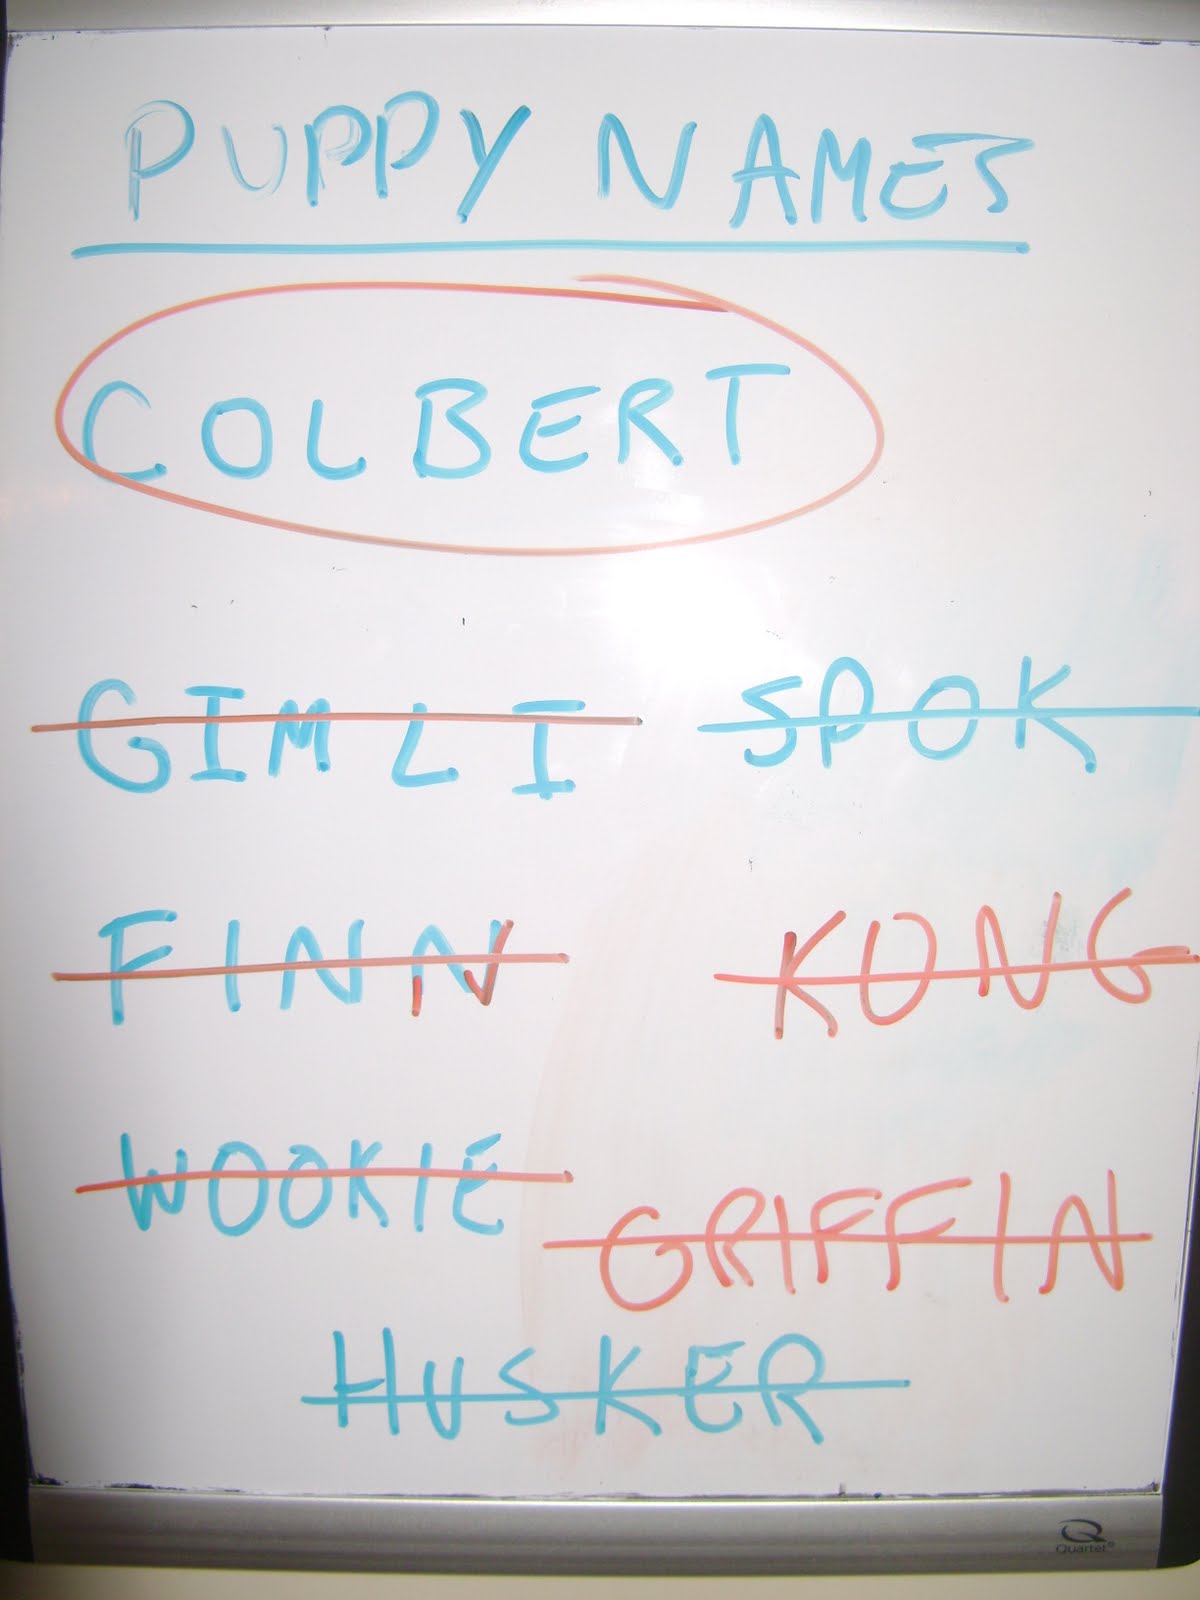 PUPPY NAMES
COLBERT
GIMLI SPOK
FINN KONG
WOOKIE GRIFFIN
HUSKER
Quartet®